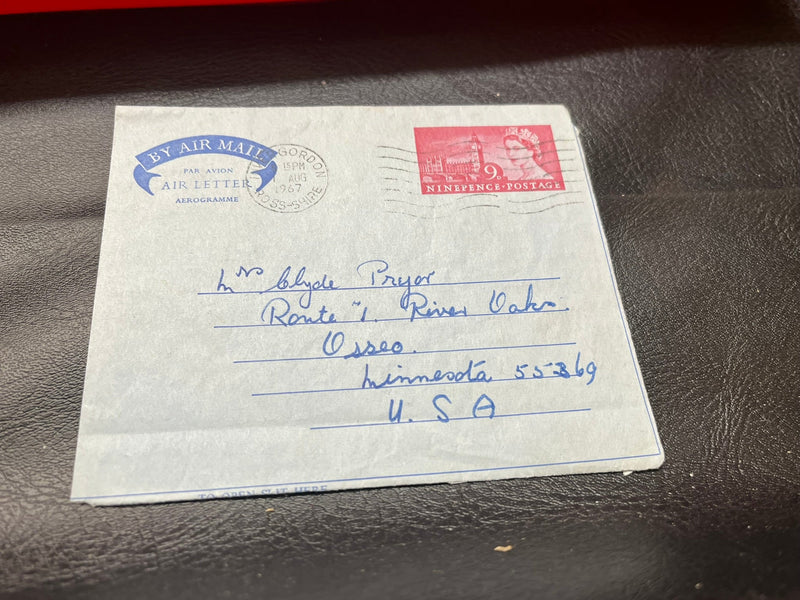 BY AIR MAIL
PAR AVION
AIR LETTER
AEROGRAMME
GORDON
15 PM
AUG
1967
ROSS-SHIRE
9D
NINEPENCE·POSTAGE
Mrs Clyde Pryor
Route "1. River Oaks.
Osseo.
Minnesota 55369
U.S A
TO OPEN SLIT HERE